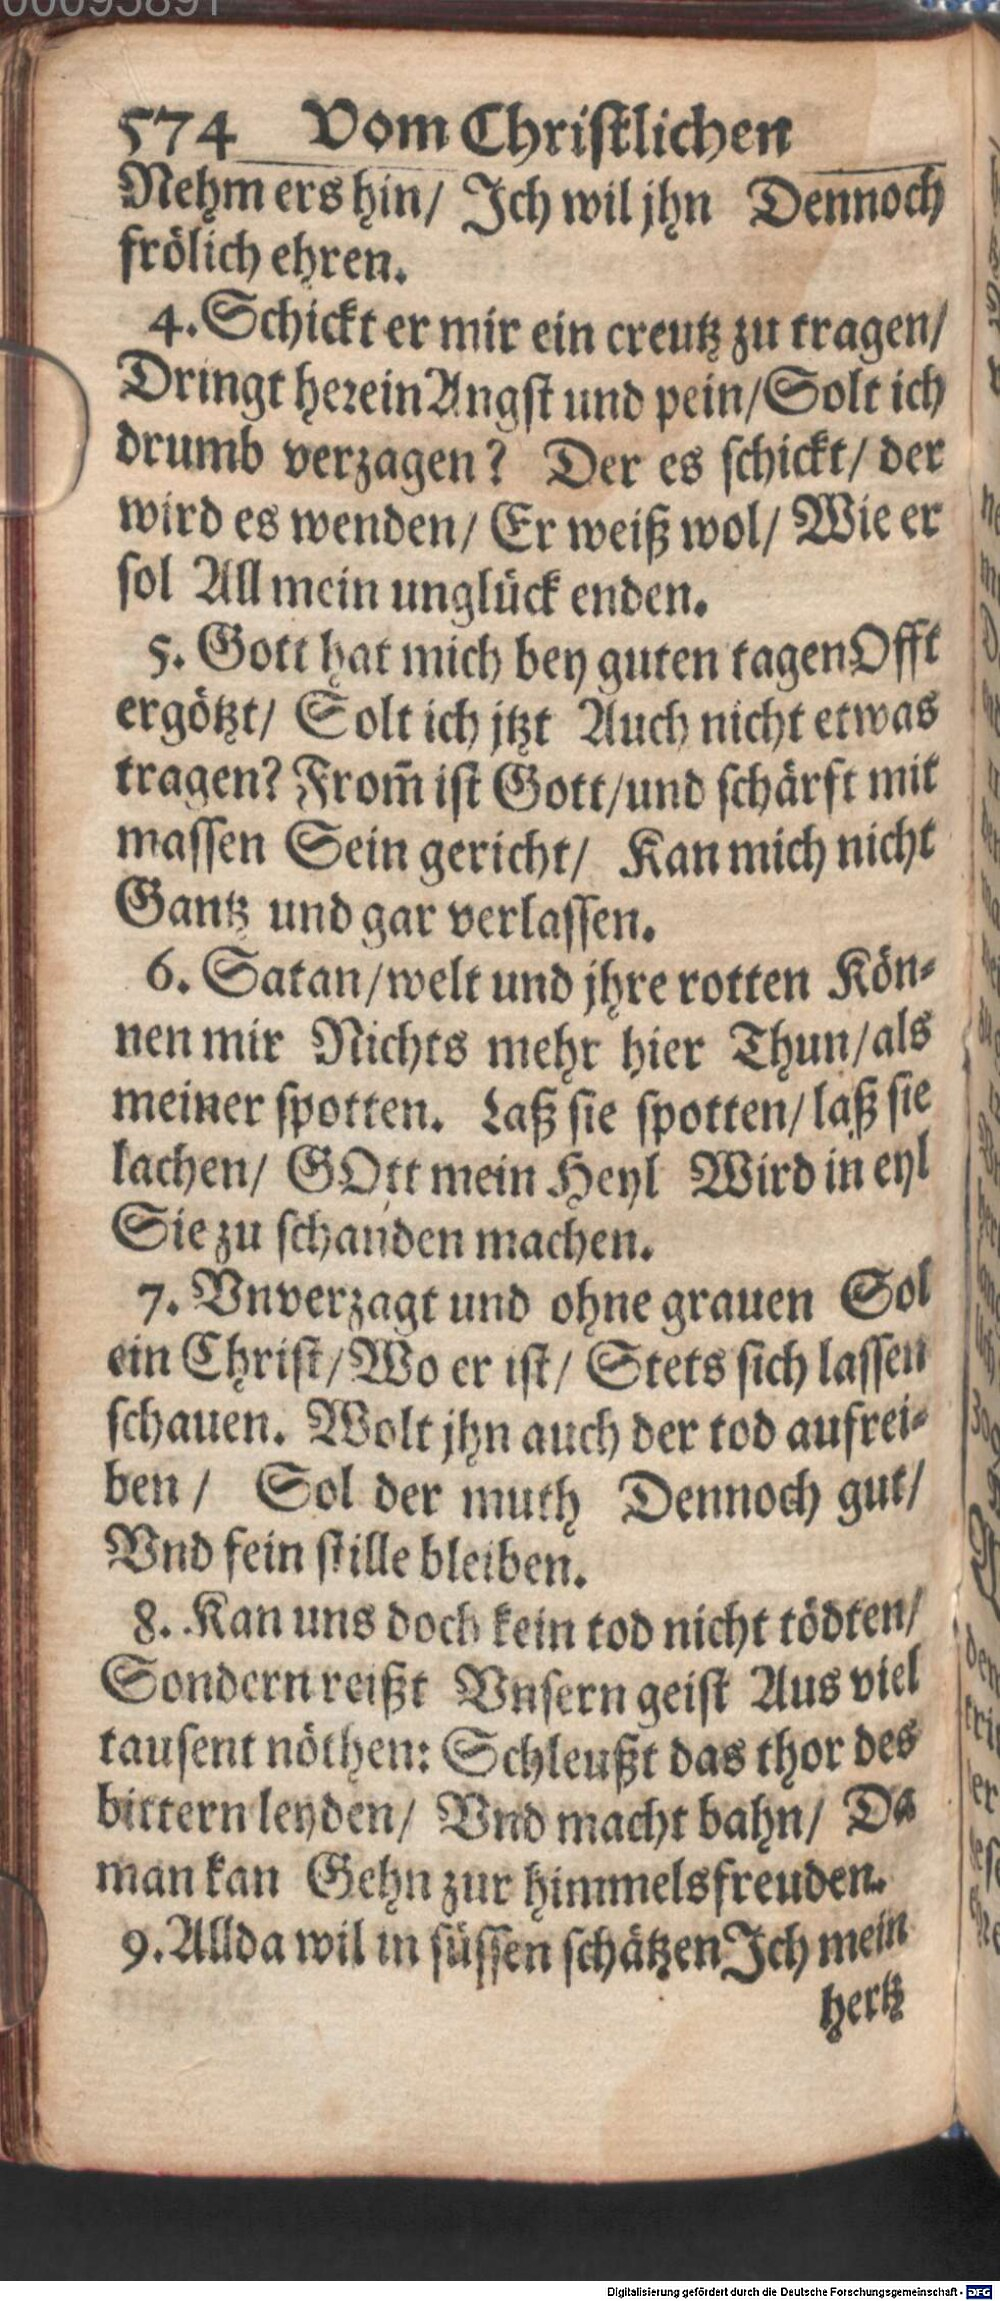 00095891
574 Vom Christlichen
Nehm ers hin/ Ich wil jhn Dennoch
frölich ehren.
4. Schickt er mir ein creutz zu tragen/
Dringt herein Angst und pein/ Solt ich
drumb verzagen? Der es schickt/ der
wird es wenden/ Er weiß wol/ Wie er
sol All mein unglück enden.
5. Gott hat mich bey guten tagen Offt
ergötzt/ Solt ich jtzt Auch nicht etwas
tragen? From̃ ist Gott/ und schärft mit
massen Sein gericht/ Kan mich nicht
Gantz und gar verlassen.
6. Satan/ welt und jhre rotten Kön-
nen mir Nichts mehr hier Thun/ als
meiner spotten. Laß sie spotten/ laß sie
lachen/ GOtt mein Heyl Wird in eyl
Sie zu schanden machen.
7. Vnverzagt und ohne grauen Sol
ein Christ/ Wo er ist/ Stets sich lassen
schauen. Wolt jhn auch der tod aufrei-
ben/ Sol der muth Dennoch gut/
Vnd fein stille bleiben.
8. Kan uns doch kein tod nicht tödten/
Sondern reißt Vnsern geist Aus viel
tausent nöthen: Schleußt das thor des
bittern leyden/ Vnd macht bahn/ Da
man kan Gehn zur himmelsfreuden.
9. Allda wil in süssen schätzen Ich mein
hertz
Digitalisierung gefördert durch die Deutsche Forschungsgemeinschaft - DFG